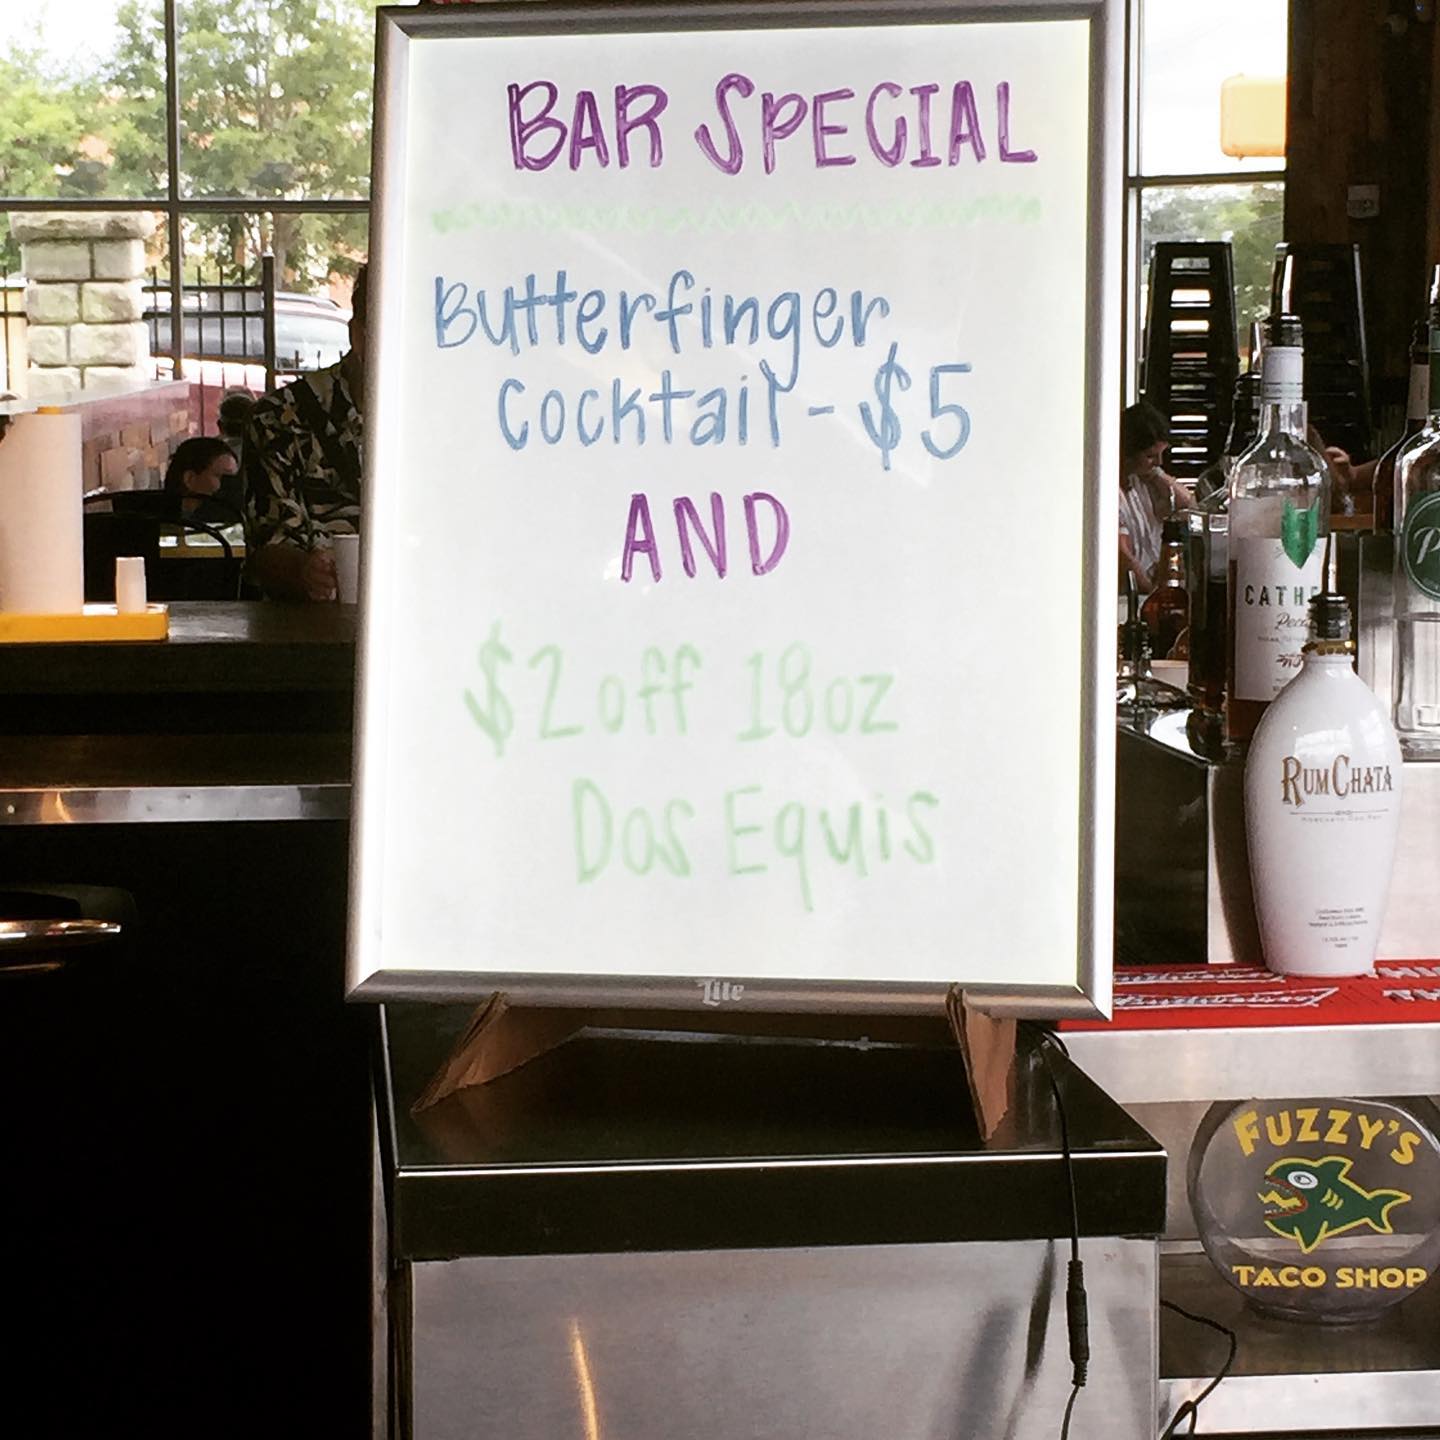 BAR SPECIAL
Butterfinger
Cocktail - $5
AND
$2 off 18oz
Dos Equis
Lite
RUMCHATA
FUZZY'S
TACO SHOP